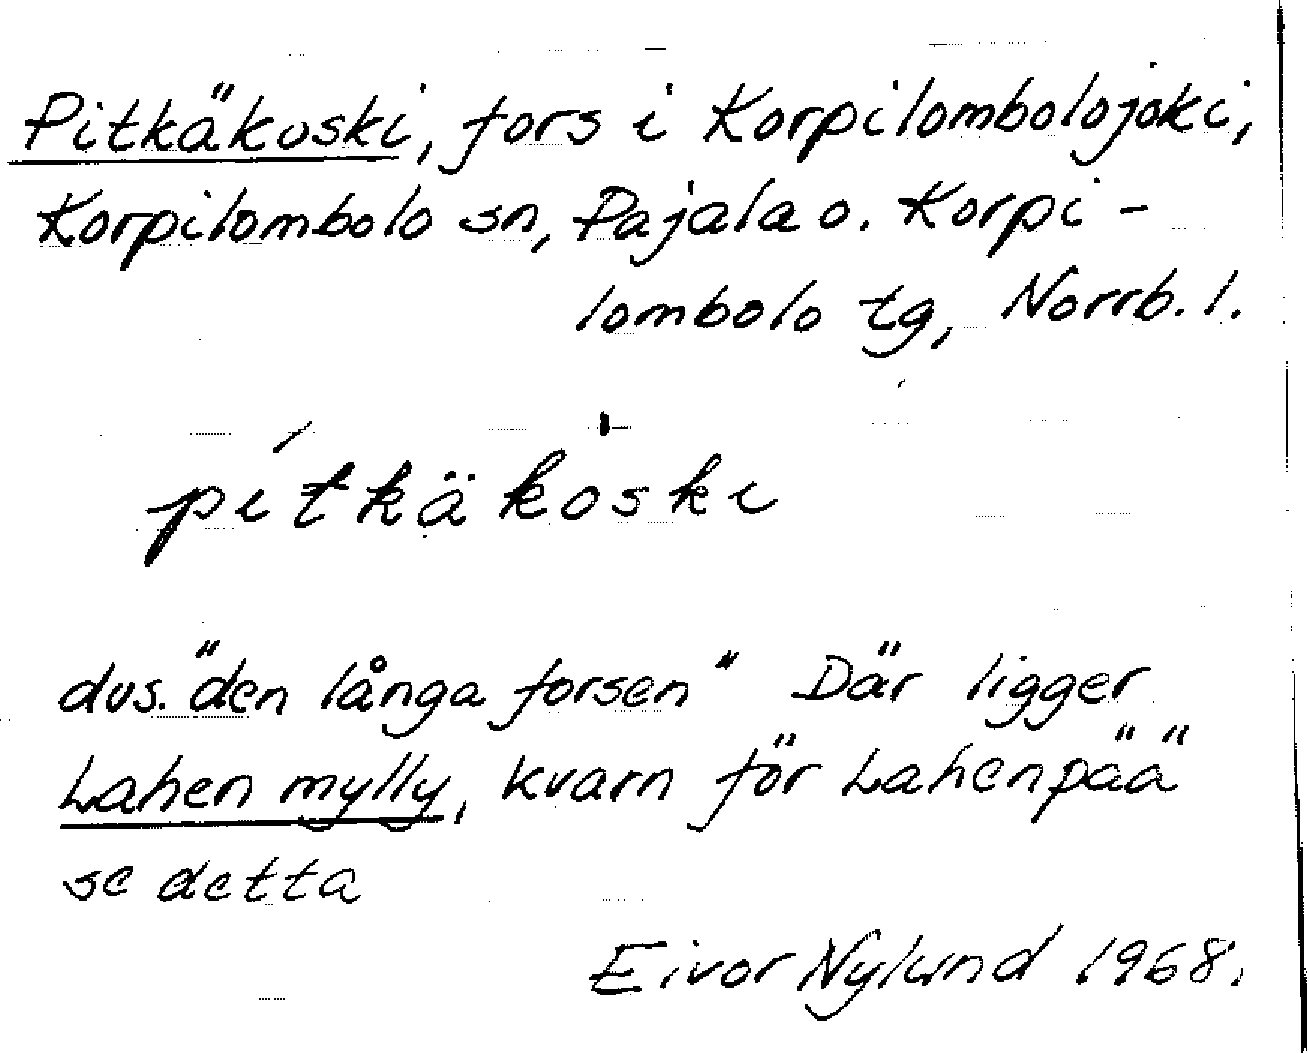 Pitkäkoski, fors i Korpilombolojoki,
Korpilombolo sn, Pajala o. Korpi-
lombolo tg, Norrb. l.
pítkäkòski
dvs. "den långa forsen" Där ligger
Lahen mylly, kvarn för Lahenpää
se detta
Eivor Nylund 1968.